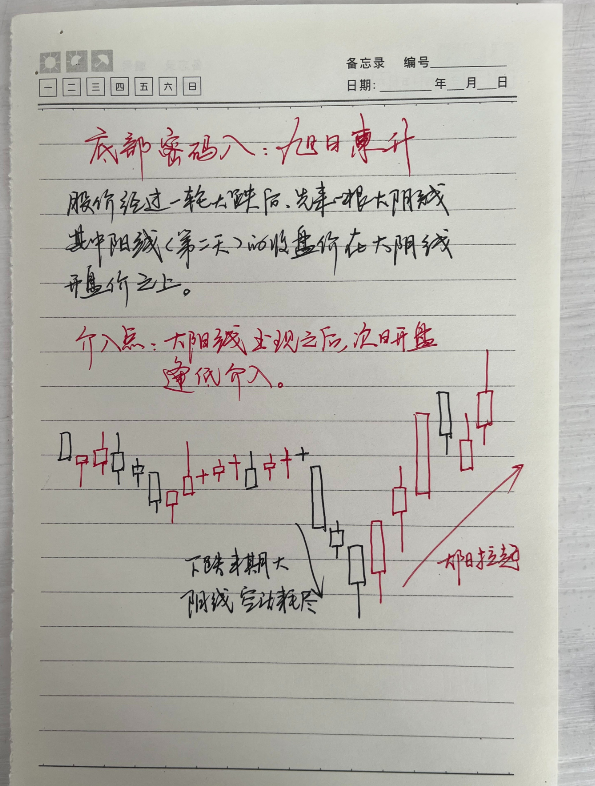 备忘录 编号
一 二 三 四 五 六 日
日期: 年 月 日
底部密码八:旭日東升
股价经过一轮大跌后,先来一根大阴线
其中阳线(第二天)的收盘价在大阴线
开盘价之上。
介入点:大阳线出现之后,次日开盘
逢低介入。
下跌末期大
阴线空动耗尽
大阳拉起